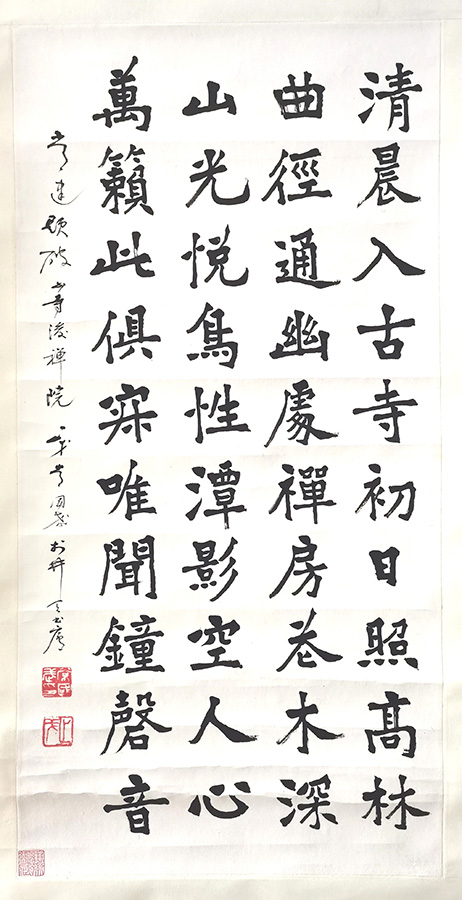 清晨入古寺初日照髙林
曲徑通幽處禪房花木深
山光悅鳥性潭影空人心
萬籟此俱寂唯聞鐘磬音
常建题破山寺後禅院